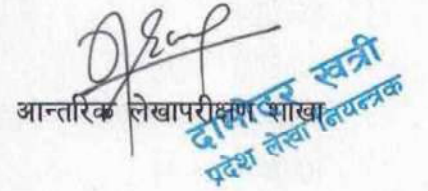 आन्तरिक लेखापरीक्षण शाखा
दामोदर खत्री
प्रदेश लेखा नियन्त्रक